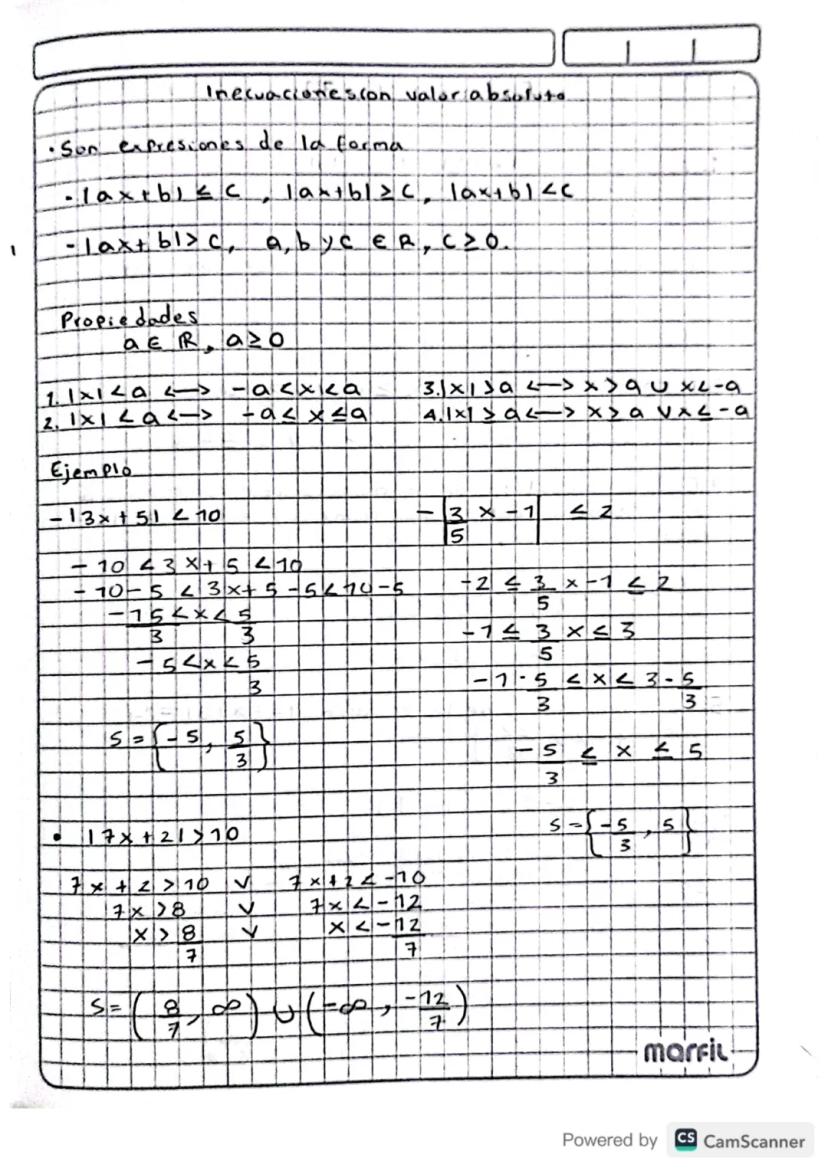 Inecuaciones con valor absoluto
• Son expresiones de la forma
- |ax+b| ≤ c , |ax+b| ≥ c, |ax+b| < c
- |ax+b| > c, a, b y c ∈ R, c ≥ 0.
Propiedades
a ∈ ℝ, a ≥ 0
1. |x| < a ⟷ -a < x < a
2. |x| ≤ a ⟷ -a ≤ x ≤ a
3. |x| > a ⟷ x > a ∪ x < -a
4. |x| ≥ a ⟷ x ≥ a ∨ x ≤ -a
Ejemplo
- |3x + 5| < 10
- 10 < 3x + 5 < 10
- 10 - 5 < 3x + 5 - 5 < 10 - 5
-15/3 < x < 5/3
- 5 < x < 5/3
S = {-5, 5/3}
- |3/5 x - 1| ≤ 2
-2 ≤ 3/5 x - 1 ≤ 2
-1 ≤ 3/5 x ≤ 3
-1 · 5/3 ≤ x ≤ 3 · 5/3
-5/3 ≤ x ≤ 5
S = {-5/3, 5}
• |7x + 2| > 10
7x + 2 > 10 ∨ 7x + 2 < -10
7x > 8 ∨ 7x < -12
x > 8/7 ∨ x < -12/7
S = (8/7, ∞) ∪ (-∞, -12/7)
marfil
Powered by CS CamScanner